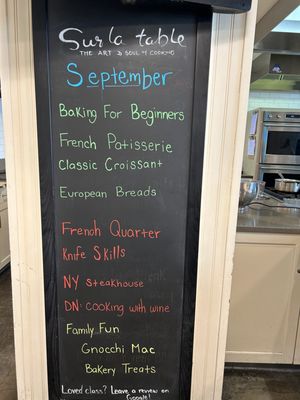 Sur la table
THE ART & SOUL of COOKING
September
Baking For Beginners
French Patisserie
Classic Croissant
European Breads
French Quarter
Knife Skills
NY Steakhouse
DN: cooking with wine
Family Fun
Gnocchi Mac
Bakery Treats
Loved class? Leave a review on
Google!